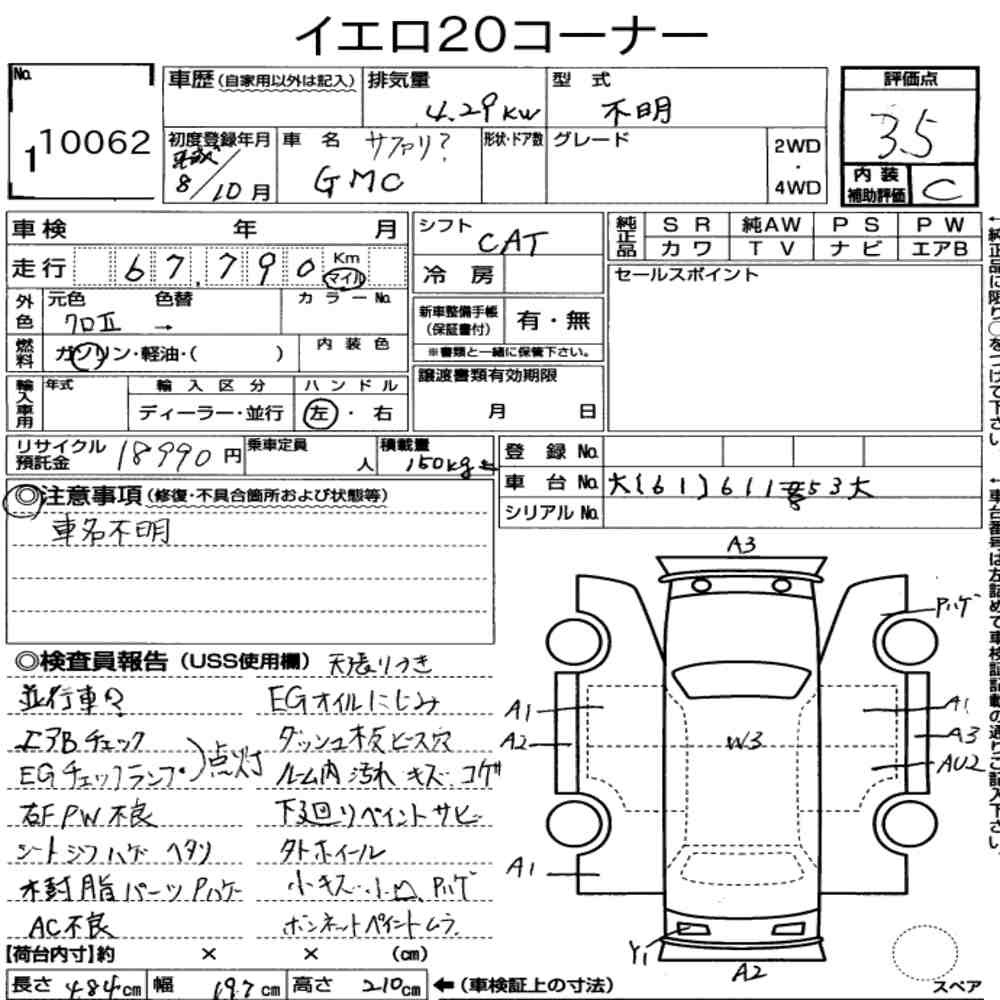 イエロ20コーナー
No. 110062
車歴(自家用以外は記入) 排気量 4.29kw 型式 不明
評価点 3.5
初度登録年月 平成8/10月 車名 サファリ? GMC 形状・ドア数 グレード 2WD・4WD
内装補助評価 C
車検 年 月 シフト CAT 純正品 SR 純AW PS PW
カワ TV ナビ エアB
走行 67,790 Km マイル 冷房 セールスポイント
外色 元色 クロII 色替 → カラーNo. 新車整備手帳(保証書付) 有・無
燃料 ガソリン・軽油・( ) 内装色 ※書類と一緒に保管下さい。
輸入車用 年式 輸入区分 ハンドル 譲渡書類有効期限
ディーラー・並行 左・右 月 日
リサイクル預託金 18990円 乗車定員 人 積載量 150kg 登録No.
車台No. 大(61)611号53大
シリアルNo.
◎注意事項(修復・不具合箇所および状態等)
車名不明
◎検査員報告(USS使用欄) 天張りつき
並行車? EGオイルにじみ
エアBチェック ダッシュ木板ビス穴
EGチェックランプ 点灯 ルーム内汚れ キズ コゲ
右FPW不良 下廻りペイントサビ
シートシワハゲ ヘタリ タトホイール
木封脂パーツPハゲ 小キズ 小凹 Pハゲ
AC不良 ボンネットペイントムラ
【荷台内寸】約 × × (cm)
長さ 484cm 幅 197cm 高さ 210cm ←(車検証上の寸法)
A3
Pハゲ
A1 A1
A2 W3 A3
AU2
A1
Y1
A2
スペア
←純正品に限り○をつけて下さい。
←車台番号は左記めて車検証記載の通りご記入下さい。